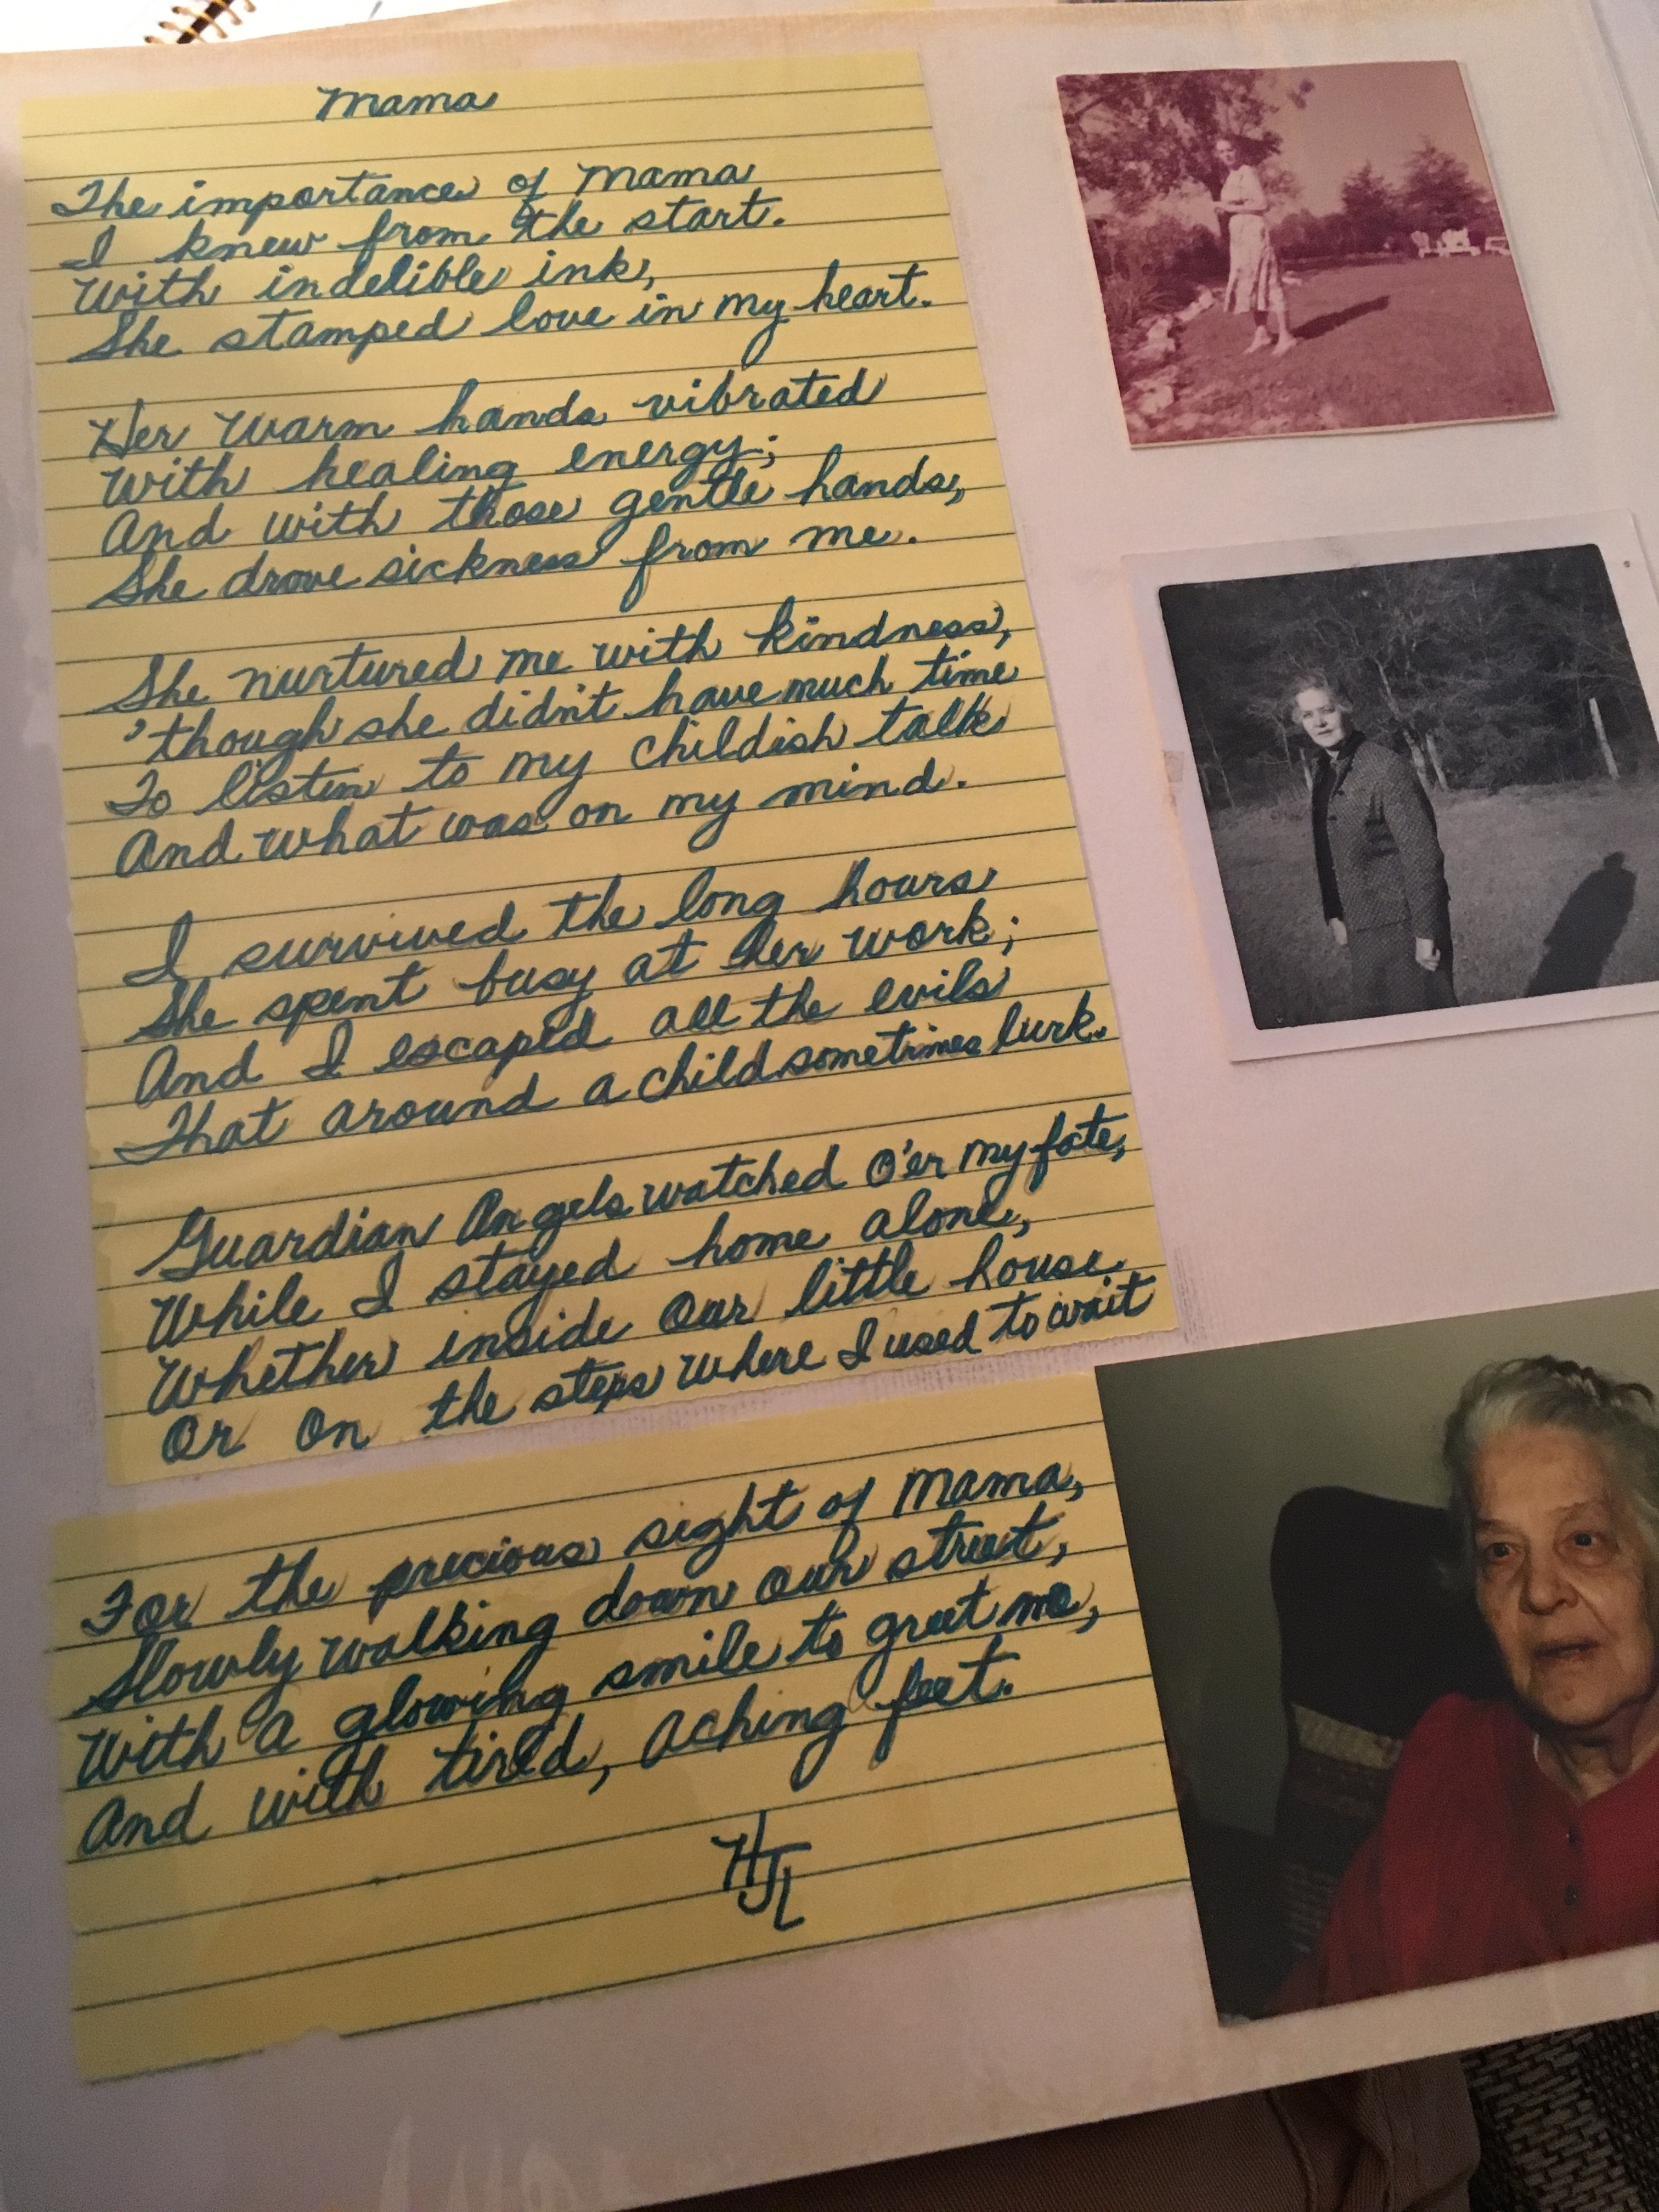 Mama
The importance of Mama
I knew from the start.
With indelible ink,
She stamped love in my heart.
Her warm hands vibrated
With healing energy;
And with those gentle hands,
She drove sickness from me.
She nurtured me with kindness,
'though she didn't have much time
To listen to my childish talk
And what was on my mind.
I survived the long hours
She spent busy at her work;
And I escaped all the evils
That around a child sometimes lurk.
Guardian Angels watched O'er my fate,
While I stayed home alone,
Whether inside our little house
Or on the steps where I used to wait
For the precious sight of Mama,
Slowly walking down our street,
With a glowing smile to greet me,
And with tired, aching feet.
HJL